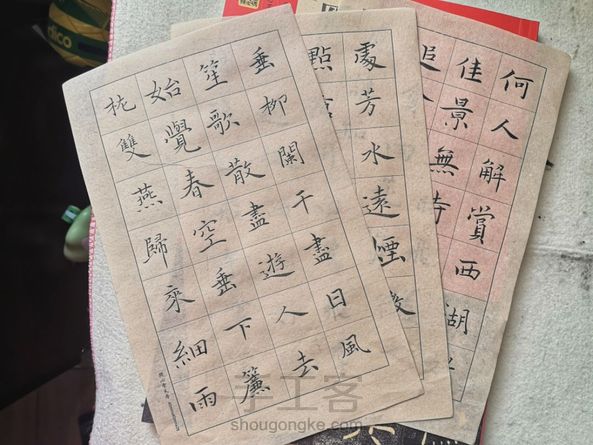 何人解賞西湖
佳景無時
追
處芳水遠煙
點
垂柳闌干盡日風
笙歌散盡遊人去
始覺春空垂下簾
栊雙燕歸來細雨
手工客
shougongke.com